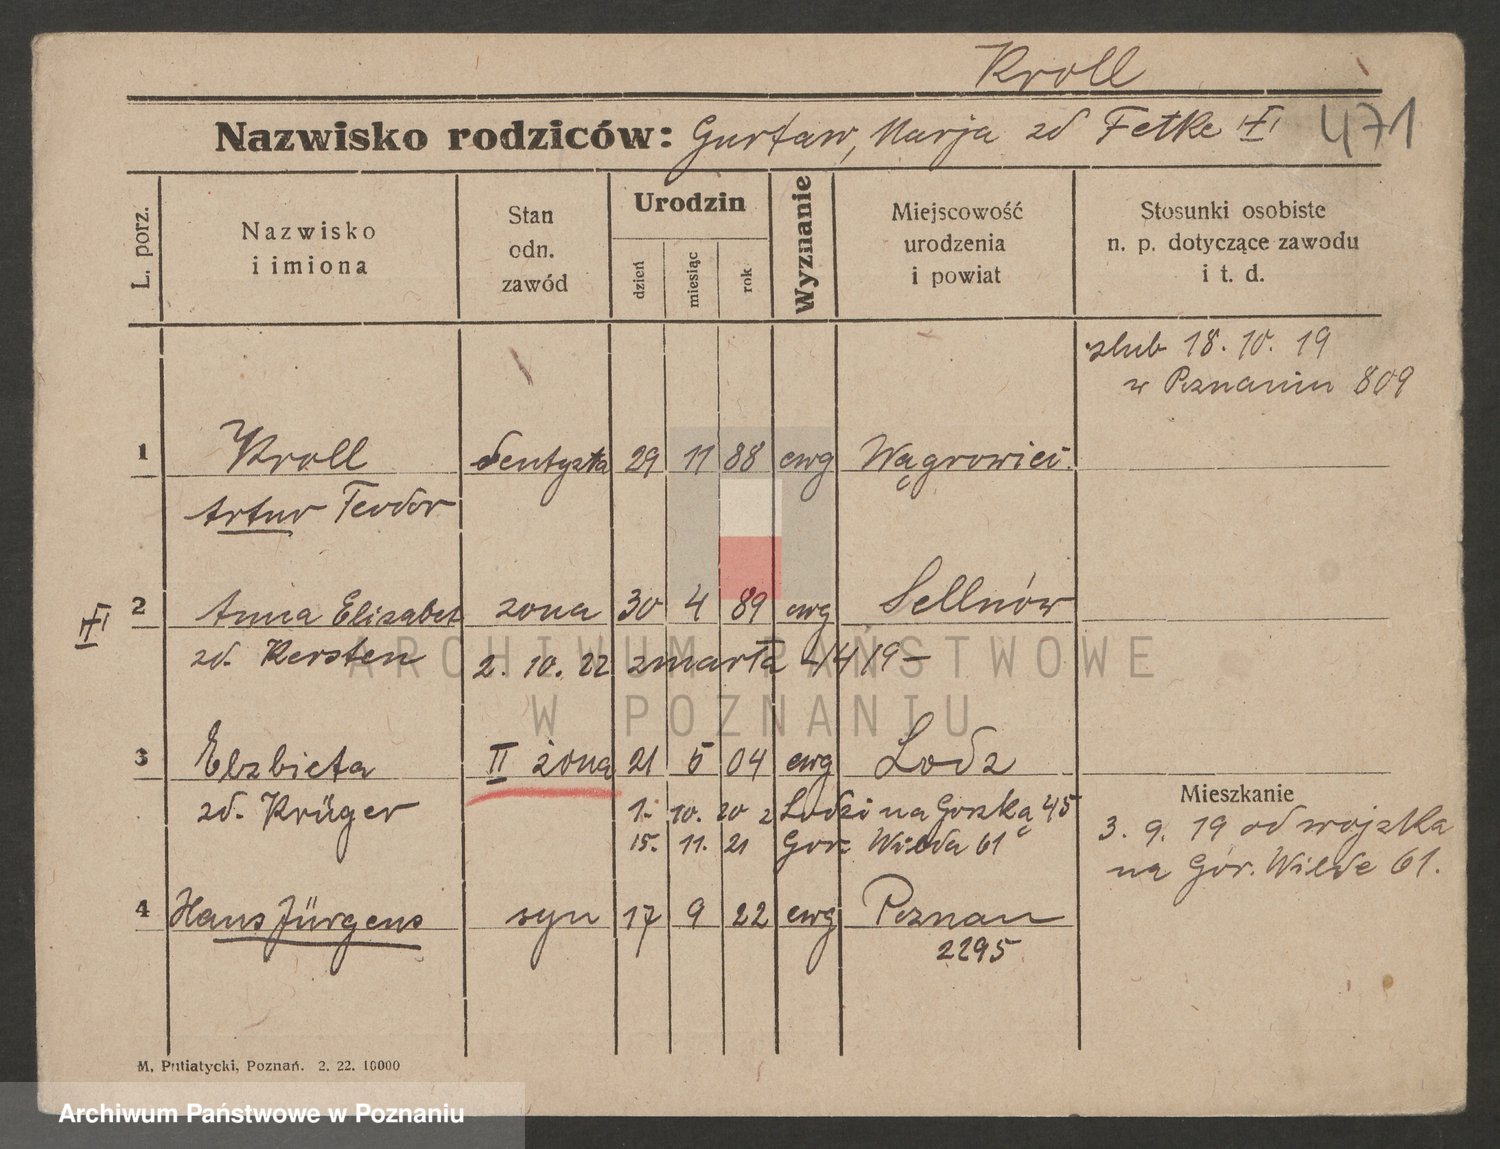 Kroll
Nazwisko rodziców: Gustaw, Marja zd Fetke 471
L. porz.
Nazwisko i imiona
Stan odn. zawód
Urodzin
dzień
miesiąc
rok
Wyznanie
Miejscowość urodzenia i powiat
Stosunki osobiste n. p. dotyczące zawodu i t. d.
ślub 18. 10. 19
w Poznaniu 809
1 Kroll dentysta 29 11 88 ewg Wągrowiec
Artur Teodor
2 Anna Elizabet żona 30 4 89 ewg Sellnów
zd. Kersten 2. 10. 22 zmarła
ARCHIWUM PAŃSTWOWE
W POZNANIU
3 Elzbieta II żona 21 5 04 ewg Lodz
Mieszkanie
zd. Krüger 1. 10. 20 z Lodzi na Gorską 45
3. 9. 19 od wojska
15. 11. 21 Gor. Wilda 61
na Gór. Wilde 61.
4 Hans Jürgens syn 17 9 22 ewg Poznan
2295
M. Putiatycki, Poznań. 2. 22. 10000
Archiwum Państwowe w Poznaniu